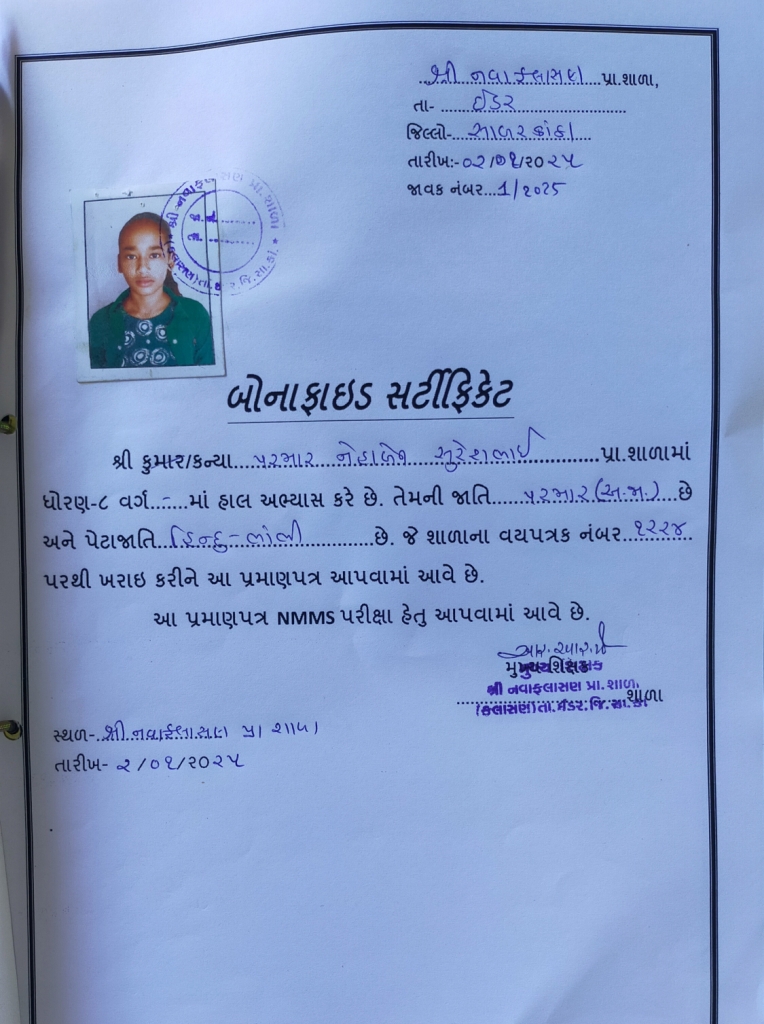 શ્રી નવાફલાસણ પ્રા.શાળા,
તા- ઈડર
જિલ્લો- સાબરકાંઠા
તારીખ:-૦૨/૦૧/૨૦૨૫
જાવક નંબર...1/૨૦૨૫
શ્રી નવાફલાસણ પ્રા.શાળા
બોનાફાઇડ સર્ટીફિકેટ
શ્રી કુમાર/કન્યા પરમાર નેહાબેન સુરેશભાઈ પ્રા.શાળામાં
ધોરણ-૮ વર્ગ...-...માં હાલ અભ્યાસ કરે છે. તેમની જાતિ પરમાર(અ.જા.) છે
અને પેટાજાતિ હિન્દુ- છે. જે શાળાના વયપત્રક નંબર ૧૨૨૪
પરથી ખરાઇ કરીને આ પ્રમાણપત્ર આપવામાં આવે છે.
આ પ્રમાણપત્ર NMMS પરીક્ષા હેતુ આપવામાં આવે છે.
મુખ્ય શિક્ષક
શ્રી નવાફલાસણ પ્રા.શાળા
(ફલાસણ) તા.ઈડર.જિ.સા.કાં શાળા
સ્થળ- શ્રી નવાફલાસણ પ્રા શાળા
તારીખ- ૨/૦૧/૨૦૨૫